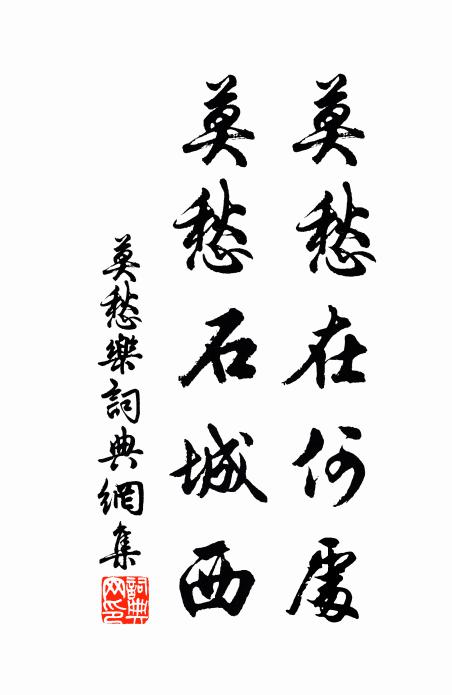 莫愁在何處
莫愁石城西
莫愁樂詞典網集
詞典网印